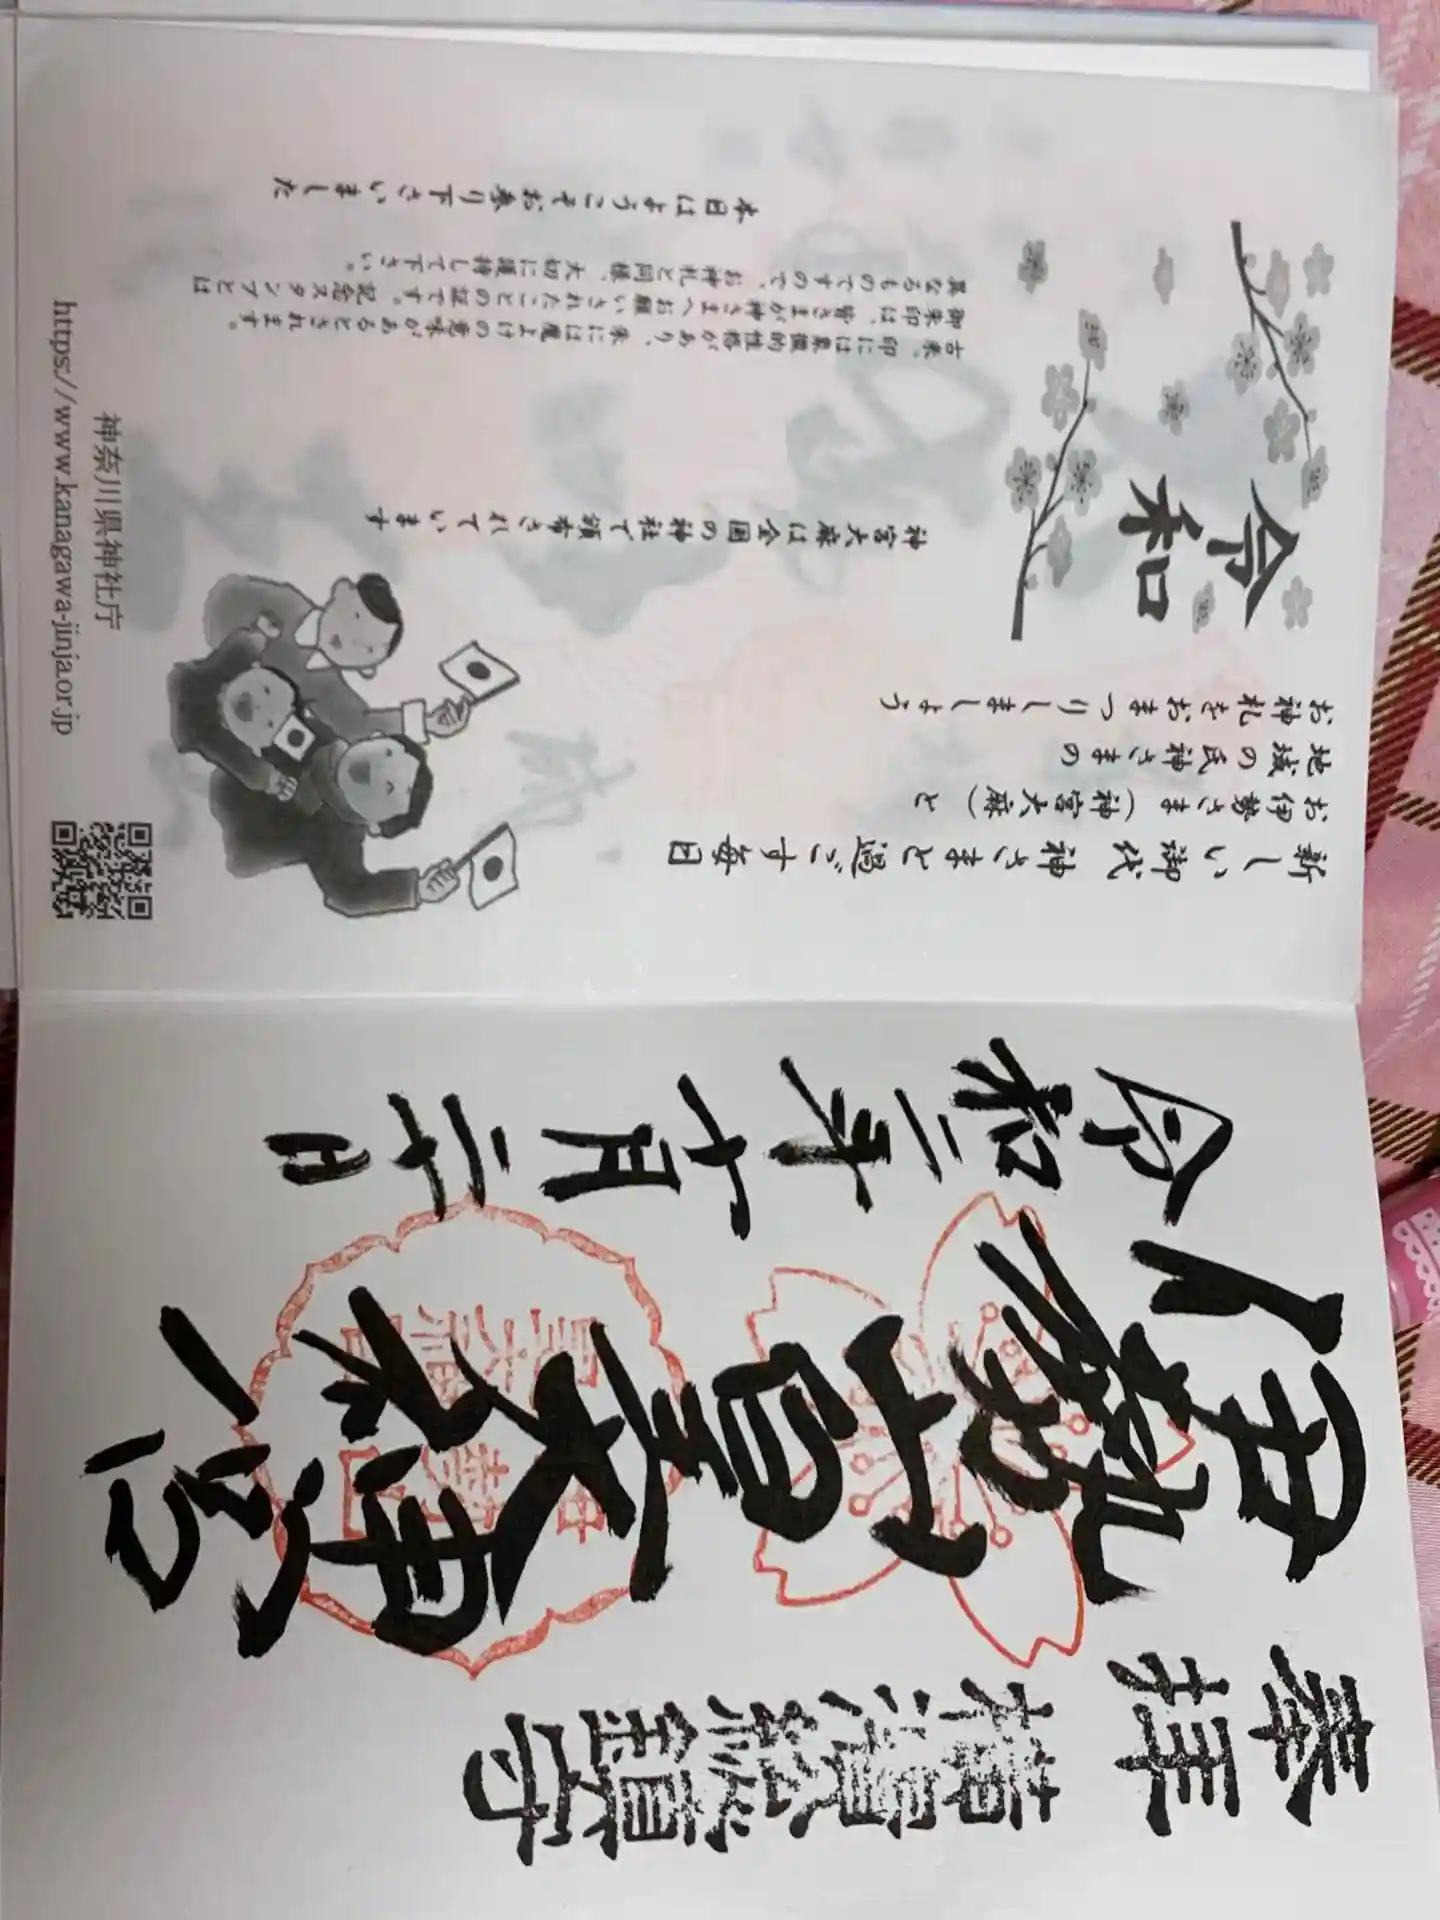 新しい御代 神さまと過ごす毎日
お伊勢さま（神宮大麻）と
地域の氏神さまの
お神札をおまつりしましょう
令和
神宮大麻は全国の神社で頒布されています
古来、印には象徴的性格があり、朱には魔よけの意味があるとされます。
御朱印は、皆さまが神さまへお願いされたことの証です。記念スタンプとは
異なるものですので、お神札と同様、大切に護持して下さい。
本日はようこそお参り下さいました
神奈川県神社庁
https://www.kanagawa-jinja.or.jp
奉拝
横濱総鎮守
伊勢山皇大神宮
令和二年十月二十日